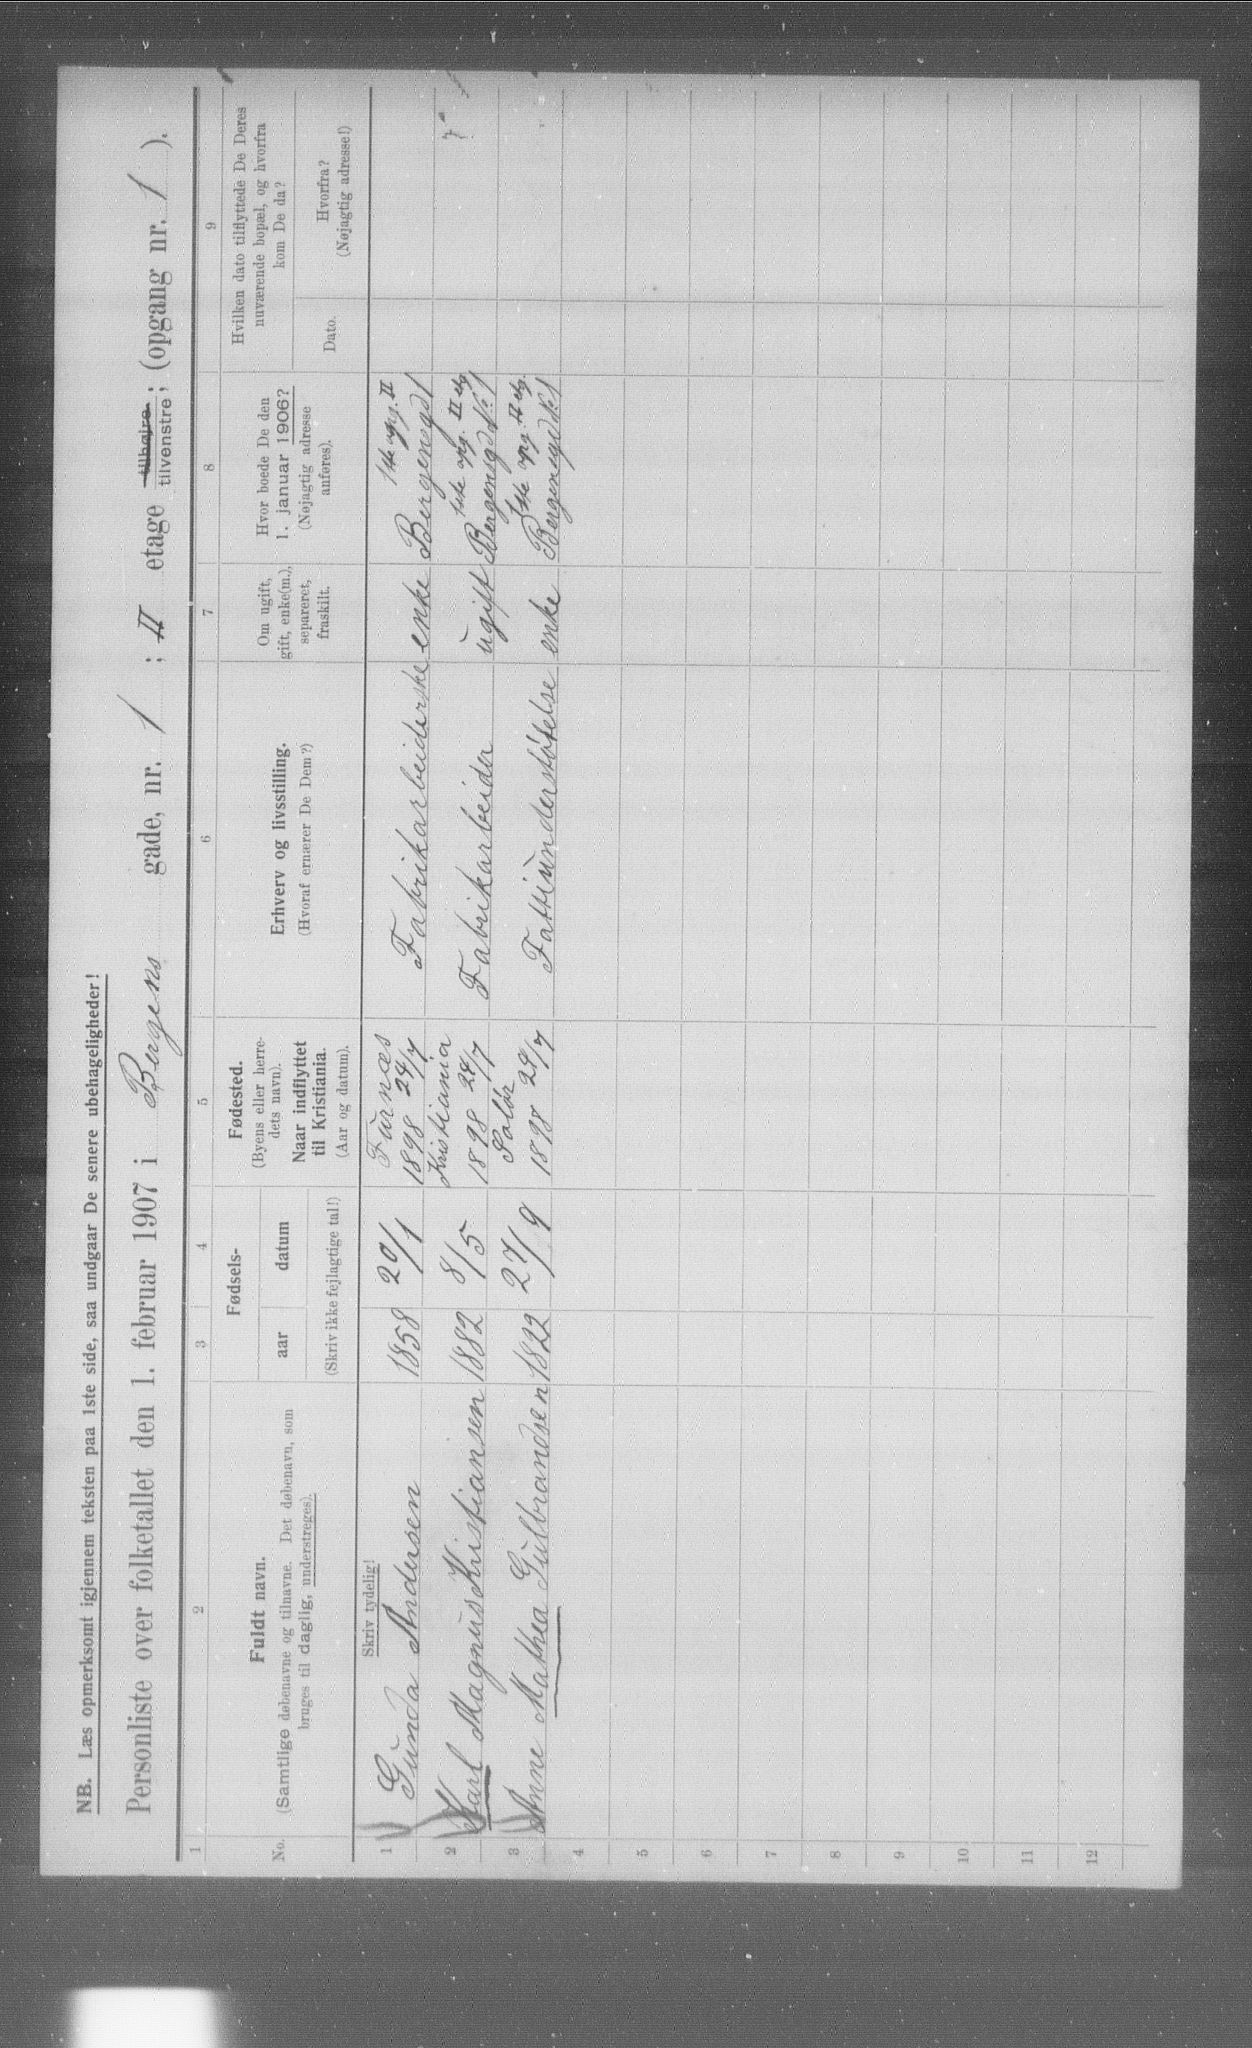 NB. Læs opmerksomt igjennem teksten paa 1ste side, saa undgaar De senere ubehageligheder!
Personliste over folketallet den 1. februar 1907 i Bergens gade, nr. 1 ; II etage tilhøjre tilvenstre ; (opgang nr. 1 ).
1 2 3 4 5 6 7 8 9
No.
Fuldt navn.
(Samtlige døbenavne og tilnavne. Det døbenavn, som
bruges til daglig, understreges).
Fødsels-
aar datum
(Skriv ikke fejlagtige tal!)
Fødested.
(Byens eller herre-
dets navn).
Naar indflyttet
til Kristiania.
(Aar og datum).
Erhverv og livsstilling.
(Hvoraf ernærer De Dem?)
Om ugift,
gift, enke(m.),
separeret,
fraskilt.
Hvor boede De den
1. januar 1906?
(Nøjagtig adresse
anføres).
Hvilken dato tilflyttede De Deres
nuværende bopæl, og hvorfra
kom De da?
Dato.
Hvorfra?
(Nøjagtig adresse!)
Skriv tydelig!
1 Gunda Andersen 1858 20/1 Furnæs 1898 24/7 Fabrikarbeiderske enke 1ste opg. II Bergensgd 1
2 Karl Magnus Kristiansen 1882 8/5 Kristiania 1898 24/7 Fabrikarbeider ugift 1ste opg. II etg Bergensgd No 1
3 Anne Mathea Gulbrandsen 1822 27/9 Solør 1898 24/7 Fattiunderstøtelse enke 1ste opg. II etg. Bergensgd No 1
4
5
6
7
8
9
10
11
12